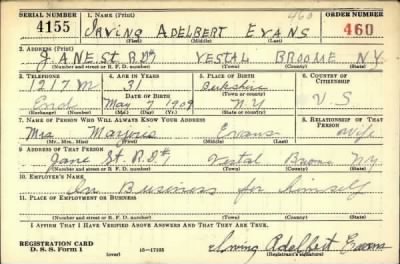 SERIAL NUMBER 1. NAME (Print) ORDER NUMBER
4155 Irving Adelbert Evans 460 460
(First) (Middle) (Last)
2. ADDRESS (Print)
JANE St. R.D. VESTAL BROOME N.Y.
(Number and street or R. F. D. number) (Town) (County) (State)
3. TELEPHONE 4. AGE IN YEARS 5. PLACE OF BIRTH 6. COUNTRY OF CITIZENSHIP
1217M 31 Berkshire
DATE OF BIRTH (Town or county)
End May 7 1909 N.Y. U.S.
(Exchange) (Number) (Mo.) (Day) (Yr.) (State or country)
7. NAME OF PERSON WHO WILL ALWAYS KNOW YOUR ADDRESS 8. RELATIONSHIP OF THAT PERSON
Mrs Marjorie Evans Wife
(Mr., Mrs., Miss) (First) (Middle) (Last)
9. ADDRESS OF THAT PERSON
Jane St. R.D. Vestal Broome N.Y.
(Number and street or R. F. D. number) (Town) (County) (State)
10. EMPLOYER'S NAME
In Business for himself
11. PLACE OF EMPLOYMENT OR BUSINESS
(Number and street or R. F. D. number) (Town) (County) (State)
I AFFIRM THAT I HAVE VERIFIED ABOVE ANSWERS AND THAT THEY ARE TRUE.
REGISTRATION CARD
D. S. S. Form 1 16-17105 Irving Adelbert Evans
(Registrant's signature)